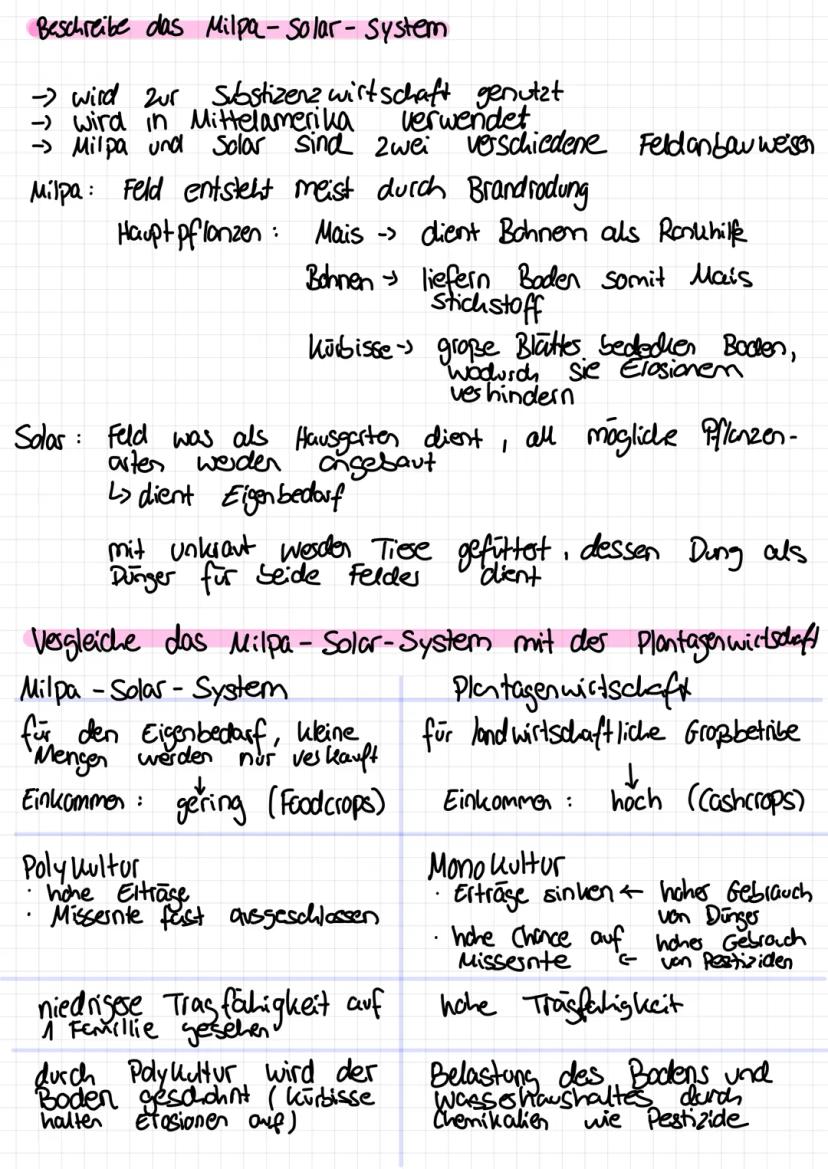 Beschreibe das Milpa-Solar-System
→ wird zur Substizenzwirtschaft genutzt
→ wird in Mittelamerika verwendet
→ Milpa und Solar sind zwei verschiedene Feldanbauweisen
Milpa: Feld entsteht meist durch Brandrodung
Hauptpflanzen: Mais → dient Bohnen als Rankhilfe
Bohnen → liefern Boden somit Mais
Stichstoff
Kürbisse → große Blätter bedecken Boden,
wodurch sie Erosionen
verhindern
Solar: Feld was als Hausgarten dient, all mögliche Pflanzen-
arten werden angebaut
↳ dient Eigenbedarf
mit unkraut werden Tiere gefüttert, dessen Dung als
Dünger für beide Felder dient
Vergleiche das Milpa-Solar-System mit der Plantagenwirtschaft
Milpa-Solar-System
Plantagenwirtschaft
für den Eigenbedarf, kleine
Mengen werden nur verkauft
↓
Einkommen: gering (Foodcrops)
für landwirtschaftliche Großbetribe
↓
Einkommen: hoch (Cashcrops)
Polykultur
· hohe Erträge
· Missernte fast ausgeschlossen
Monokultur
· Erträge sinken ← hoher Gebrauch
von Dünger
· hohe Chance auf hoher Gebrauch
Missernte ← von Pestiziden
niedrigere Tragfähigkeit auf
1 Familie gesehen
hohe Tragfähigkeit
durch Polykultur wird der
Boden geschohnt (Kürbisse
halten Erosionen auf)
Belastung des Bodens und
Wasserhaushaltes durch
Chemikalien wie Pestizide